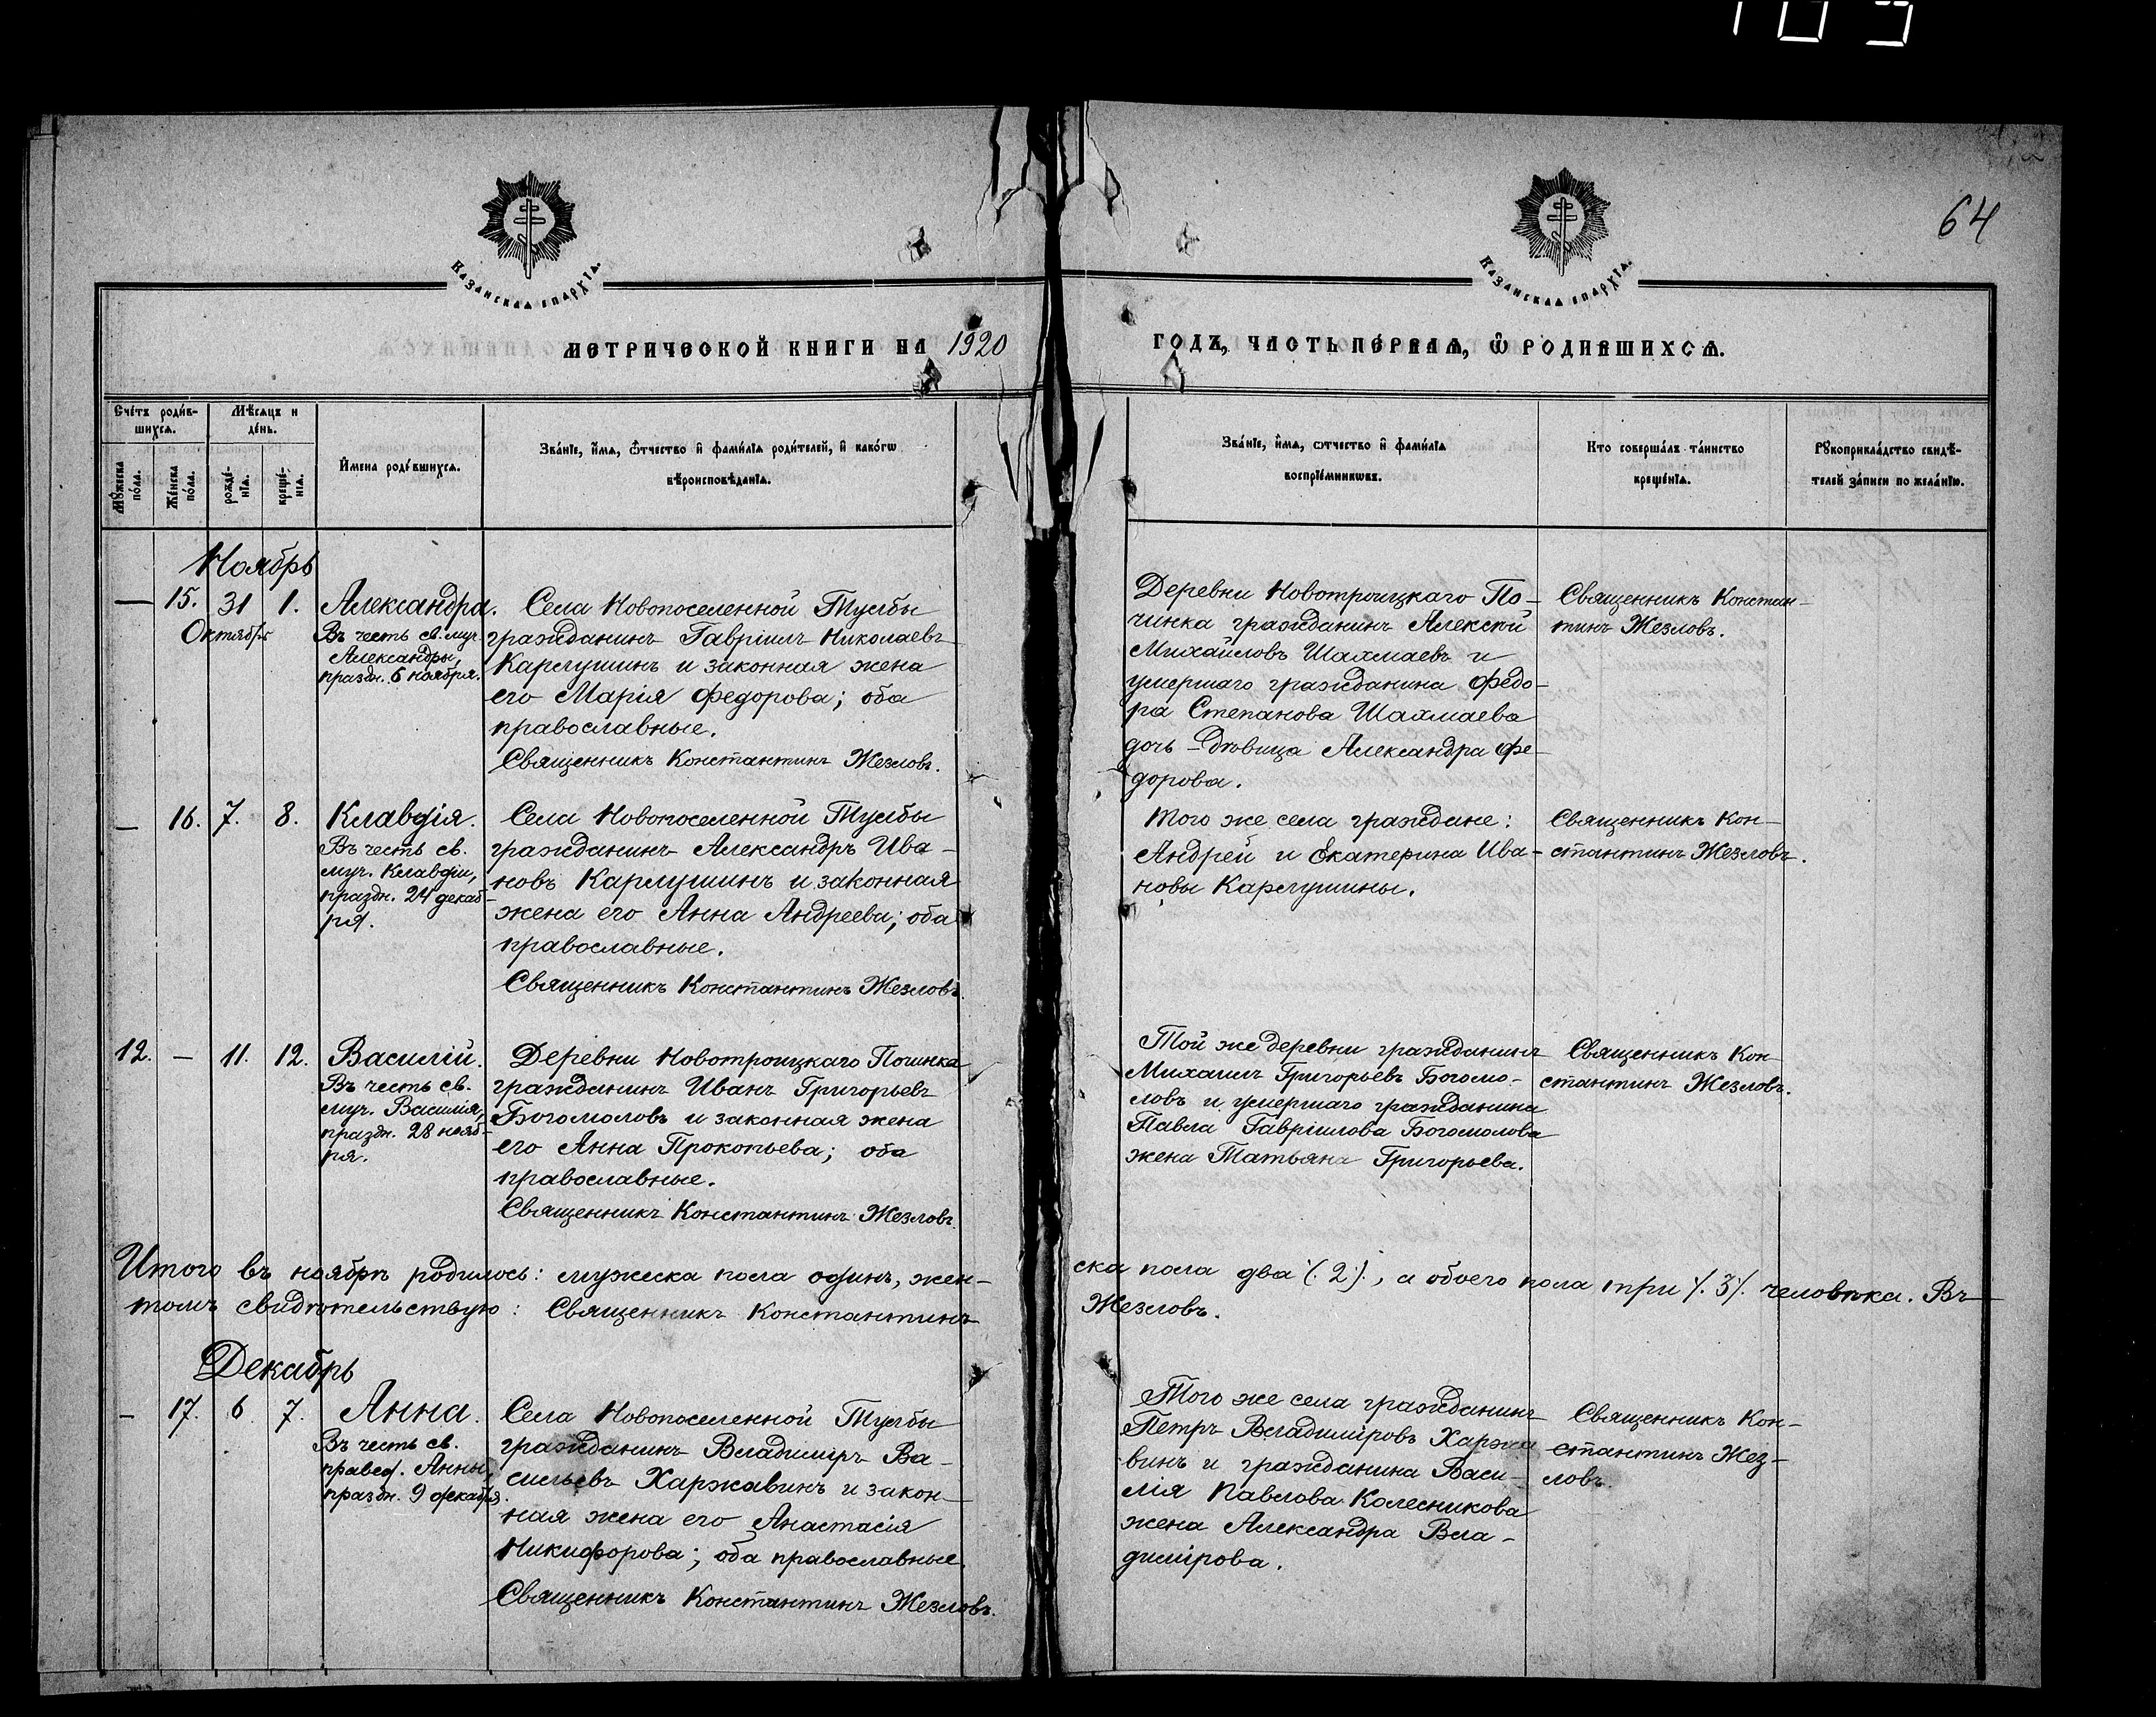 64
Казанская епархїа.
Казанская епархїа.
МЕТРИЧЕСКОЙ КНИГИ НА 1920
ГОДЪ, ЧАСТЬ ПЕ́РВАѦ, Ѽ РОДИВШИХСѦ.
Сче́тъ роди́в-
шихсѧ.
Мѣ́сѧцъ и
де́нь.
Мꙋ́жеска
по́ла.
Же́нска
по́ла.
рожде́-
нїѧ.
креще́-
нїѧ.
И҆мена роди́вшихсѧ.
Зва́нїе, и҆́мѧ, ѻ҆́тчество и҆ фами́лїѧ роди́телей, и҆ како́гѡ
вѣроисповѣ́данїѧ.
Зва́нїе, и҆́мѧ, ѻтчество и҆ фами́лїѧ
воспрїе́мниковъ.
Кто соверша́лъ та́инство
креще́нїѧ.
Рꙋкоприкла́дство свидѣ́-
телей за́писи по жела́нїю.
Ноябрь
— 15. 31 1. Александра.
Октября
Въ честь св. муч.
Александры,
праздн. 6 ноября.
Села Новопоселенной Тумбы
гражданинъ Гавріилъ Николаевъ
Карлушинъ и законная жена
его Марія Федорова; оба
православные.
Священникъ Константинъ Жезловъ.
Деревни Новотроицкаго По-
чинка гражданинъ Алексѣй
Михайловъ Шахмаевъ и
умершаго гражданина Федо-
ра Степанова Шахмаева
дочь-дѣвица Александра Фе-
дорова.
Священникъ Констан-
тинъ Жезловъ.
— 16. 7. 8. Клавдія.
Въ честь св.
муч. Клавдіи,
праздн. 24 декаб-
ря.
Села Новопоселенной Тумбы
гражданинъ Александръ Ива-
новъ Карлушинъ и законная
жена его Анна Андреева; оба
православные.
Священникъ Константинъ Жезловъ.
Того же села граждане:
Андрей и Екатерина Ива-
новы Карлушины.
Священникъ Кон-
стантинъ Жезловъ.
12. — 11. 12. Василій.
Въ честь св.
муч. Василія,
праздн. 28 нояб-
ря.
Деревни Новотроицкаго Починка
гражданинъ Иванъ Григорьевъ
Богомоловъ и законная жена
его Анна Прокопьева; оба
православные.
Священникъ Константинъ Жезловъ.
Той же деревни гражданинъ
Михаилъ Григорьевъ Богомо-
ловъ и умершаго гражданина
Павла Гавріилова Богомолова
жена Татьяна Григорьева.
Священникъ Кон-
стантинъ Жезловъ.
Итого въ ноябрѣ родилось: мужеска пола одинъ, жен-
ска пола два /. 2 /., а обоего пола три /. 3 /. человѣка. Въ
томъ свидѣтельствую: Священникъ Константинъ
Жезловъ.
Декабрь
— 17. 6. 7. Анна.
Въ честь св.
правед. Анны,
праздн. 9 декабря.
Села Новопоселенной Тумбы
гражданинъ Владиміръ Ва-
сильевъ Харжавинъ и закон-
ная жена его Анастасія
Никифорова; оба православные.
Священникъ Константинъ Жезловъ.
Того же села гражданинъ
Петръ Владиміровъ Харжа
винъ и гражданина Васи-
лія Павлова Колесникова
жена Александра Вла-
димірова.
Священникъ Кон-
стантинъ Жез-
ловъ.